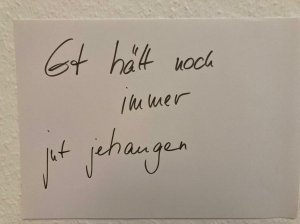 Et hätt noch
immer
jut jehangen